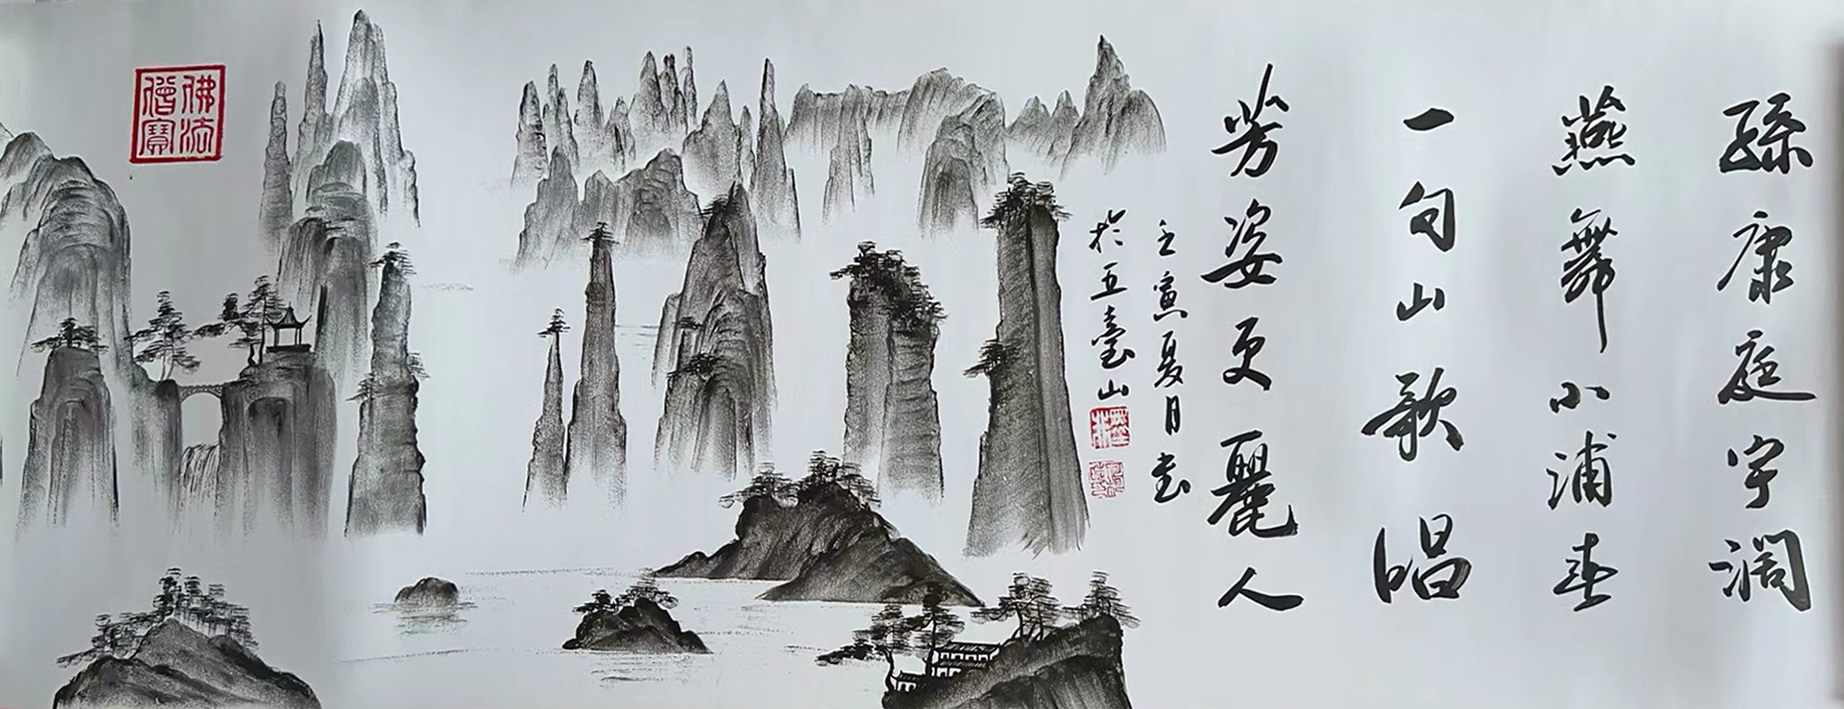 孫康庭宇濶
燕舞小浦春
一句山歌唱
芳姿更麗人
壬寅夏月書
於五臺山
佛法
僧寶